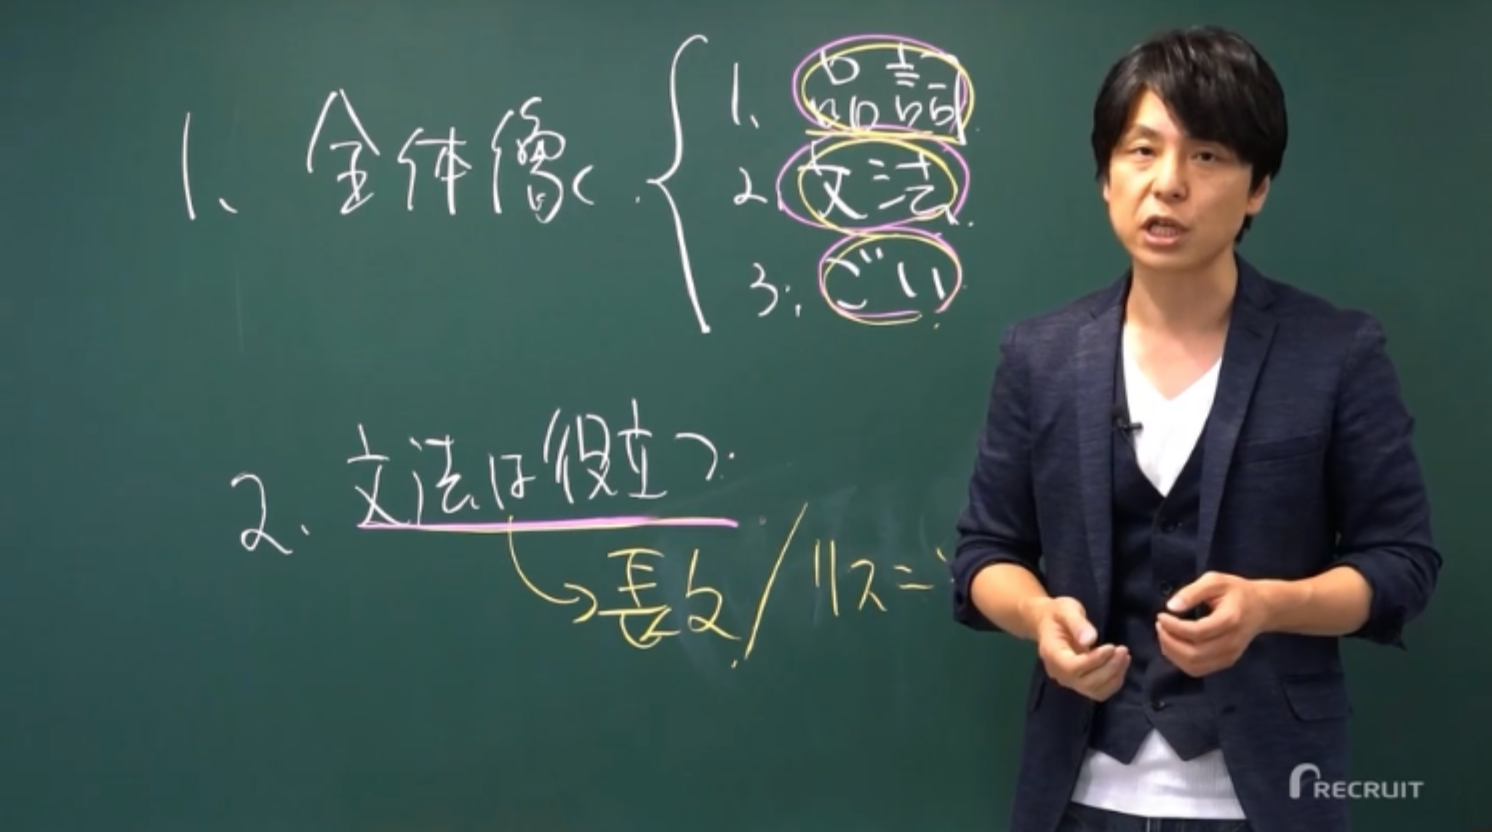 1、全体像
1、品詞
2、文法
3、ごい
2、文法は役立つ
長文/リスニ
RECRUIT